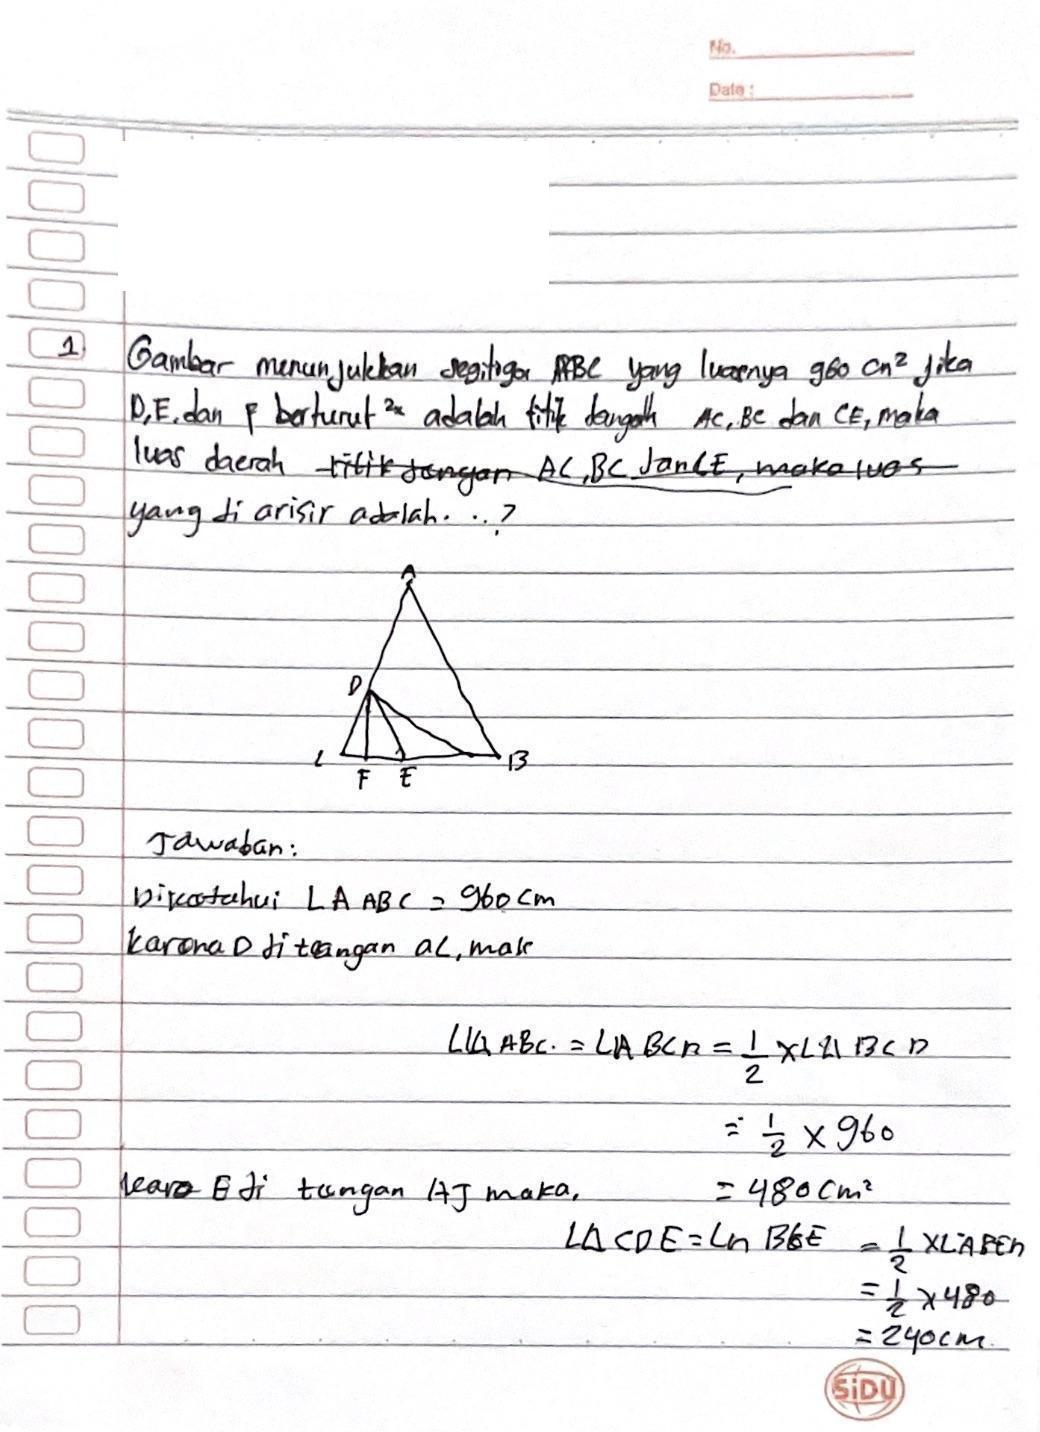 No.
Date :
1 Gambar menunjukkan segitiga ABC yang luasnya 960 cm² jika
D, E, dan F berturut 2x adalah titik tengah AC, BC dan CE, maka
luas daerah titik tengan AC, BC dan CE, maka luas
yang di arisir adalah. . .?
A
D
L
F E
B
Jawaban:
Diketahui LA ABC = 960 cm
karena D di tengan aC, mak
ABC. = LA BCD = 1/2 x L BCD
= 1/2 x 960
E di tengan maka, = 480 cm²
LΔ CDE = = 1/2 x
= 1/2 x 480
= 240 cm.
SiDU